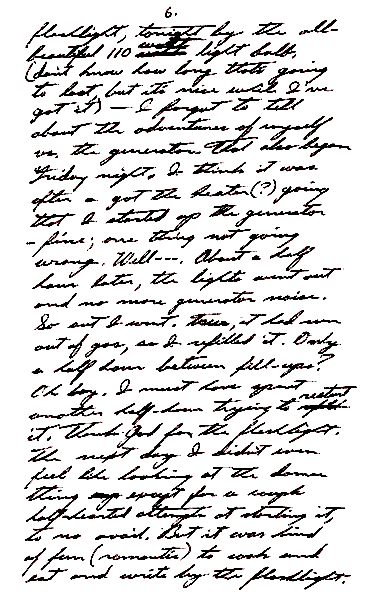 6.
flashlight, tonight by the all-
beautiful 110 watt light bulb.
(don't know how long that's going
to last, but it's nice while I've
got it) — I forgot to tell
about the adventures of myself
vs. the generator. That also began
Friday night. I think it was
after a got the heater(?) going
that I started up the generator
- fine; one thing not going
wrong. Well---. About a half
hour later, the lights went out
and no more generator noise.
So out I went. True, it had run
out of gas, so I refilled it. Only
a half hour between fill-ups?
Oh boy. I must have spent
another half-hour trying to restart
it. Thank God for the flashlight.
The next day I didn't even
feel like looking at the damn
thing except for a couple
half-hearted attempts at starting it,
to no avail. But it was kind
of fun (romantic) to cook and
eat and write by the flashlight.